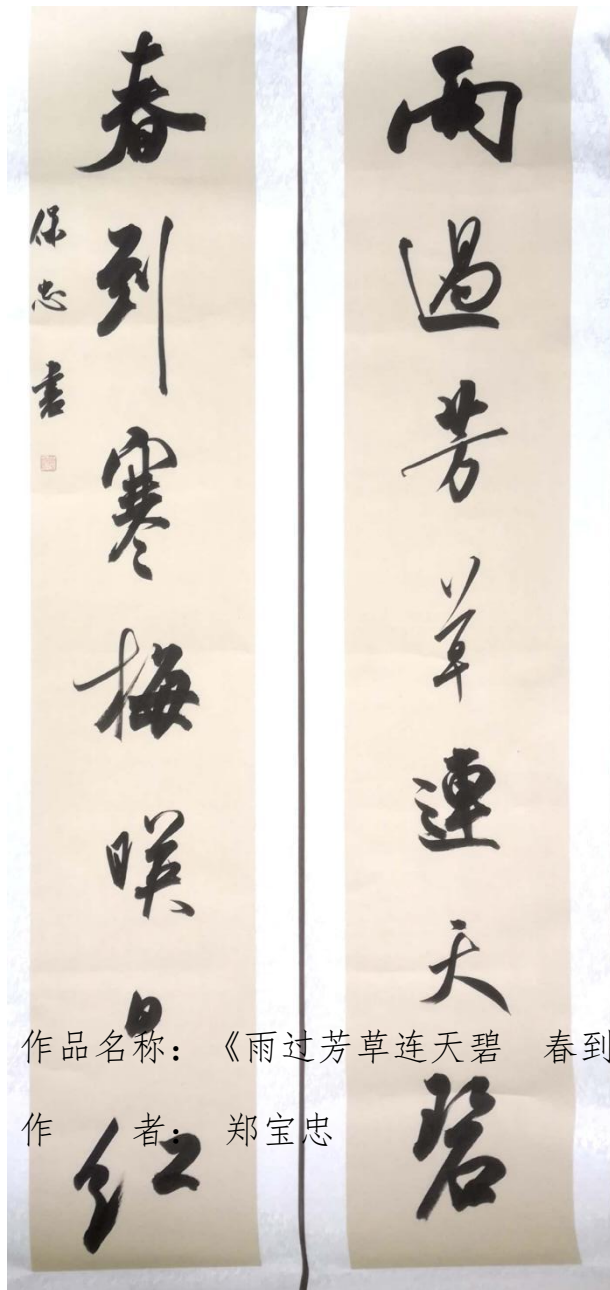 雨過芳草連天碧
春到寒梅暎日紅
保忠書
作品名称：《雨过芳草连天碧　春到
作　　者：　郑宝忠